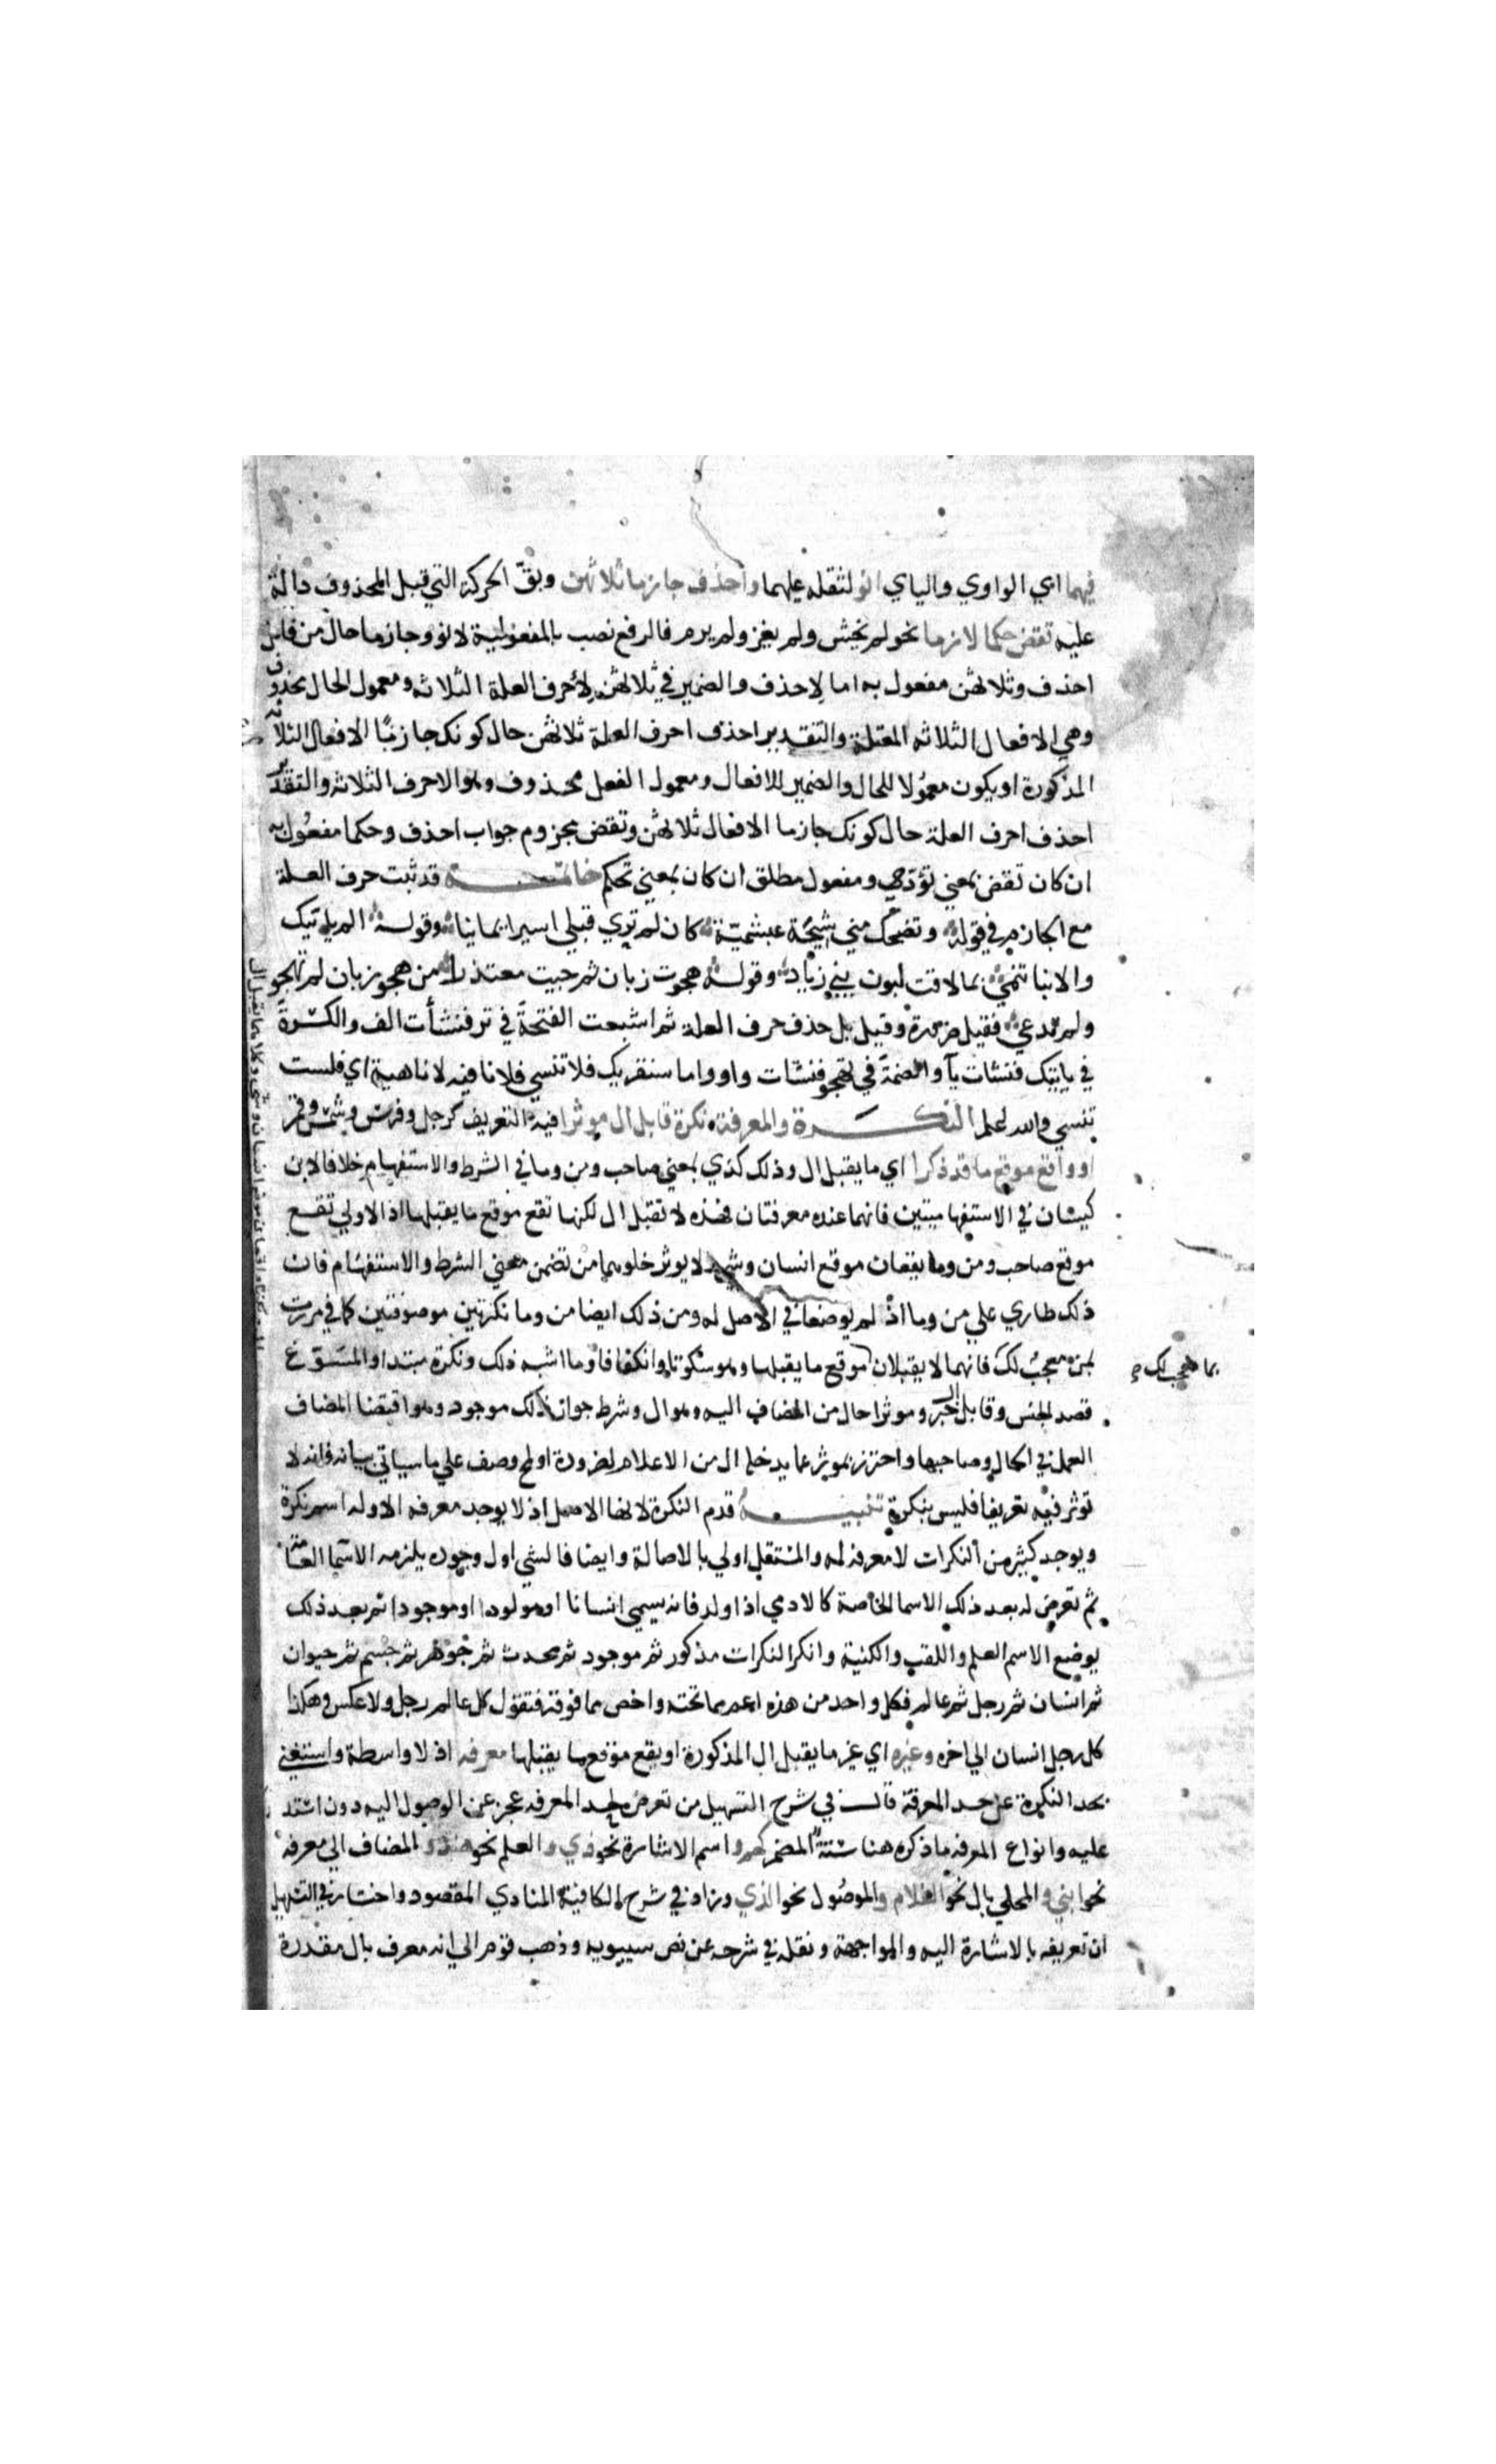 فيهما اي الواوي والياي انو لثقله عليهما واحذف جازما ثلاثهن وبقّ الحركة التي قبل المحذوف دالة
عليه تقض حكما لازما نحو لم يخش ولم يغز ولم يرم فالرفع نصب بالمفعولية لانو وجازما حال من فاعل
احذف وثلاثهن مفعول به اما لاحذف والضمير في ثلاثهن لأحرف العلة الثلاثه ومعمول الحال محذوف
وهي الافعال الثلاثه المعتلة والتقدير احذف احرف العلة ثلاثهن حال كونك جازمًا الافعال الثلاثة
المذكورة او يكون معمولا للحال والضمير للافعال ومعمول الفعل محذوف وهو الاحرف الثلاثه والتقدير
احذف احرف العلة حال كونك جازما الافعال ثلاثهن وتقض مجزوم جواب احذف وحكما مفعول به
ان كان تقض بمعني تؤدي ومفعول مطلق ان كان بمعني تحكم خاتمـــة قد ثبت حرف العلة
مع الجازم في قوله وتضحك مني شيخة عبشميّة كان لم تري قبلي اسيرا يمانيا وقوله الم ياتيك
والانبا تنمي بما لاقت لبون بني زياد وقوله هجوت زبان ثم جيت معتذرا من هجو زبان لم تهجو
ولم تدع فقيل ضرورة وقيل بل حذف حرف العلة ثم اشبعت الفتحة في تر فنشأت الف والكسرة
في ياتيك فنشات يآ والضمة في تهجو فنشات واو واما سنقريك فلا تنسي فلا نافيه لا ناهية اي فلست
تنسي والله اعلم النكـــرة والمعرفة نكرة قابل ال موثرا فيه التعريف كرجل وفرس وشمس وقمر
او واقع موقع ما قد ذكرا اي ما يقبل ال وذلك كذي بمعني صاحب ومن وما في الشرط والاستفهام خلافا لابن
كيسان في الاستفهاميتين فانهما عنده معرفتان فهذه لا تقبل ال لكنها تقع موقع ما يقبلها اذ الاولي تقع
موقع صاحب ومن وما يقعان موقع انسان وشي ولا يوثر خلوهما من تضمن معني الشرط والاستفهام فان
ذلك طاري علي من وما اذ لم يوضعا في الاصل له ومن ذلك ايضا من وما نكرتين موصوفتين كما في مررت
بمن معجب لك فانهما لا يقبلان موقع ما يقبلها وهو سكوتا وانكفافا وما اشبه ذلك ونكرة مبتدا والمسوغ
بما معجب لك
قصد الجنس وقابل ال خبر وموثرا حال من المضاف اليه وهو ال وشرط جواز ذلك موجود وهو اقتضا المضاف
العمل في الحال وصاحبها واحترز بموثر عما يدخله ال من الاعلام لضرورة او لمح وصف علي ما سياتي بيانه فانه لا
توثر فيه تعريفا فليس بنكرة تنبيـــه قدم النكرة لانها الاصل اذ لا يوجد معرفه الا وله اسم نكرة
ويوجد كثير من النكرات لا معرفه له والمستقل اولي بالاصالة وايضا فالشي اول وجوده يلزمه الاسما العامة
ثم تعرض له بعد ذلك الاسما الخاصة كالادمي اذا ولد فانه يسمي انسانا او مولودا او موجودا ثم بعد ذلك
يوضع الاسم العلم واللقب والكنية وانكر النكرات مذكور ثم موجود ثم محدث ثم جوهر ثم جسم ثم حيوان
ثم انسان ثم رجل ثم عالم فكل واحد من هذه اعم مما تحته واخص مما فوقه فتقول كل عالم رجل ولا عكس وهكذا
كل رجل انسان الي اخره وغيره اي غير ما يقبل ال المذكورة او يقع موقع ما يقبلها معرفه اذ لا واسطة واستغني
بحد النكرة عن حد المعرفة قال في شرح التسهيل من تعرض لحد المعرفه عجز عن الوصول اليه دون استد
عليه وانواع المعرفه ما ذكره هنا ستة المضمر كهم واسم الاشارة نحو ذي والعلم نحو هند والمضاف الي معرفه
نحو ابني والمحلي بال نحو الغلام والموصول نحو الذي وزاد في شرح الكافية المنادي المقصود واختار في التسهيل
ان تعريفه بالاشارة اليه والمواجهة ونقله في شرحه عن نص سيبويه وذهب قوم الي انه معرف بال مقدرة